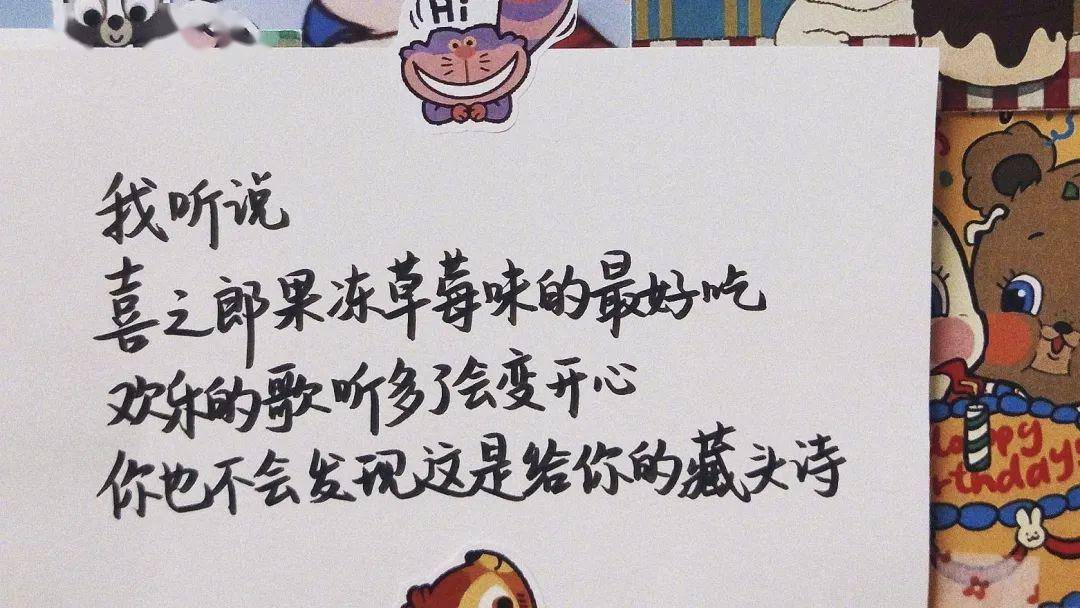 Hi
我听说
喜之郎果冻草莓味的最好吃
欢乐的歌听多了会变开心
你也不会发现这是给你的藏头诗
Happy
Birthday